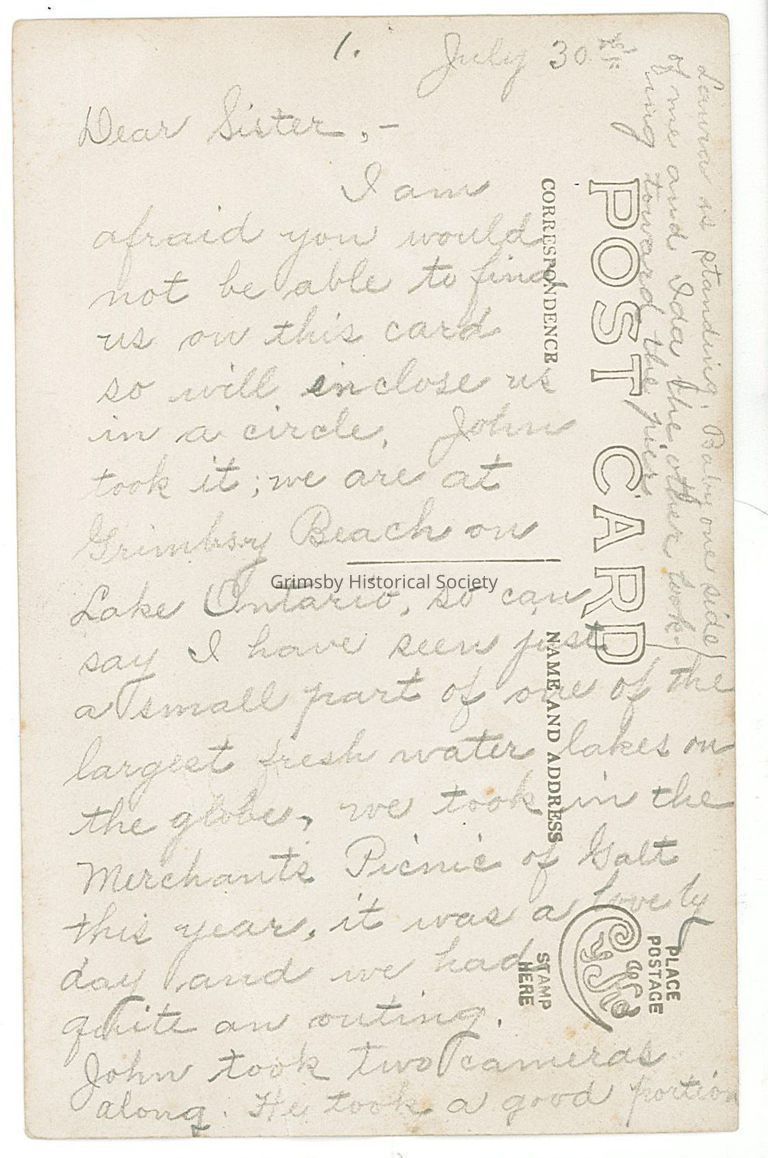 1. July 30th
Dear Sister,-
I am
afraid you would
not be able to find
us on this card
so will inclose us
in a circle. John
took it; we are at
Grimbsy Beach on
Lake Ontario, so can
say I have seen just
a small part of one of the
largest fresh water lakes on
the globe, we took in the
Merchants Picnic of Galt
this year, it was a lovely
day and we had
quite an outing.
John took two cameras
along. He took a good portion
Laura is standing. Baby one side
of me and Ida the other look-
ing toward the pier
POST CARD
CORRESPONDENCE
NAME AND ADDRESS
PLACE
POSTAGE
STAMP
HERE
Grimsby Historical Society